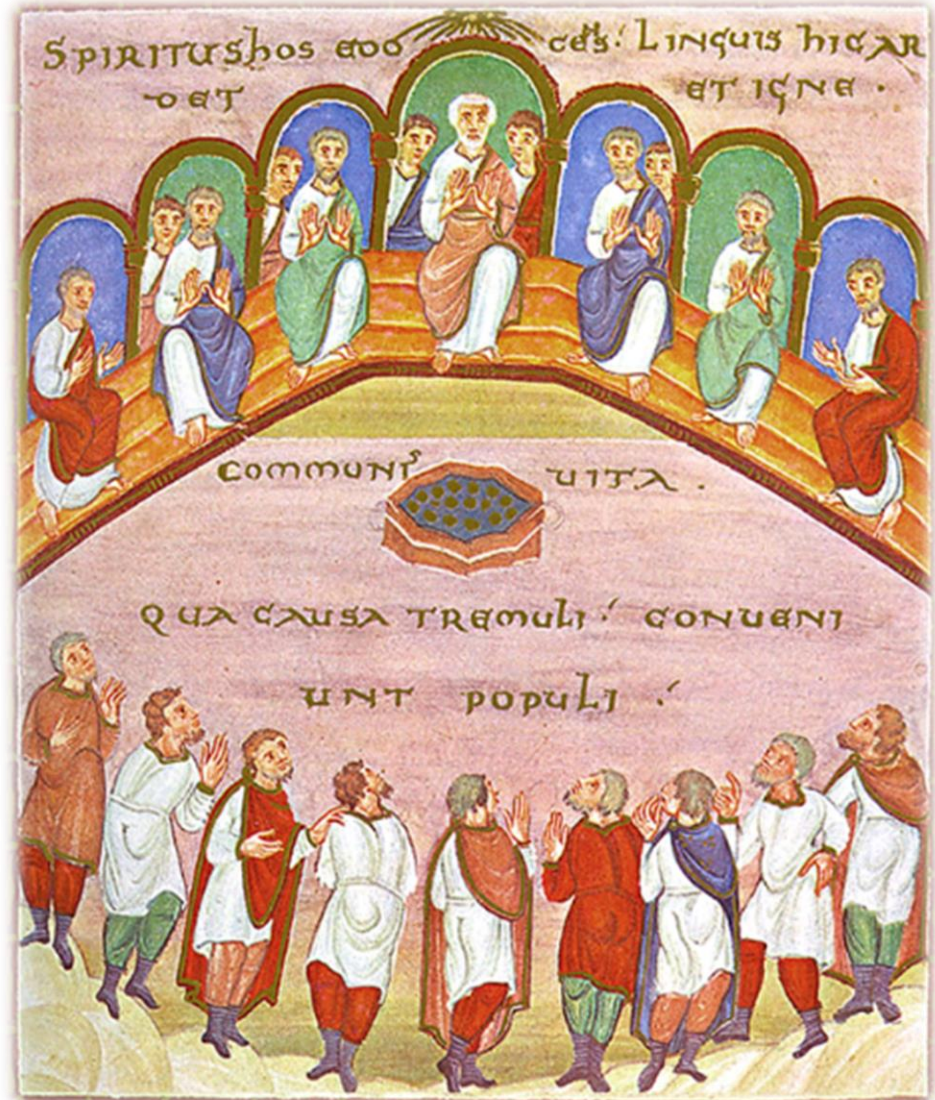 SPIRITUS hOS EDO CES: LINGUIS hIC AR
DET ET IGNE .
COMMUNIS UITA .
QUA CAUSA TREMULI : CONUENI
UNT POPULI :